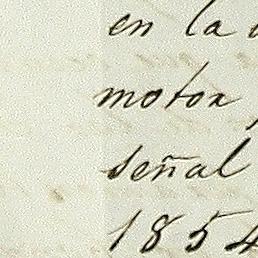 en la
motor,
señal
1854